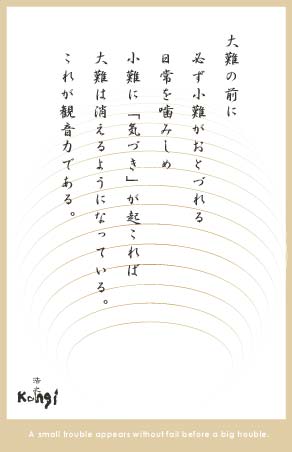 大難の前に
必ず小難がおとづれる
日常を噛みしめ
小難に「気づき」が起これば
大難は消えるようになっている。
これが観音力である。
Kongi
A small trouble appears without fail before a big trouble.